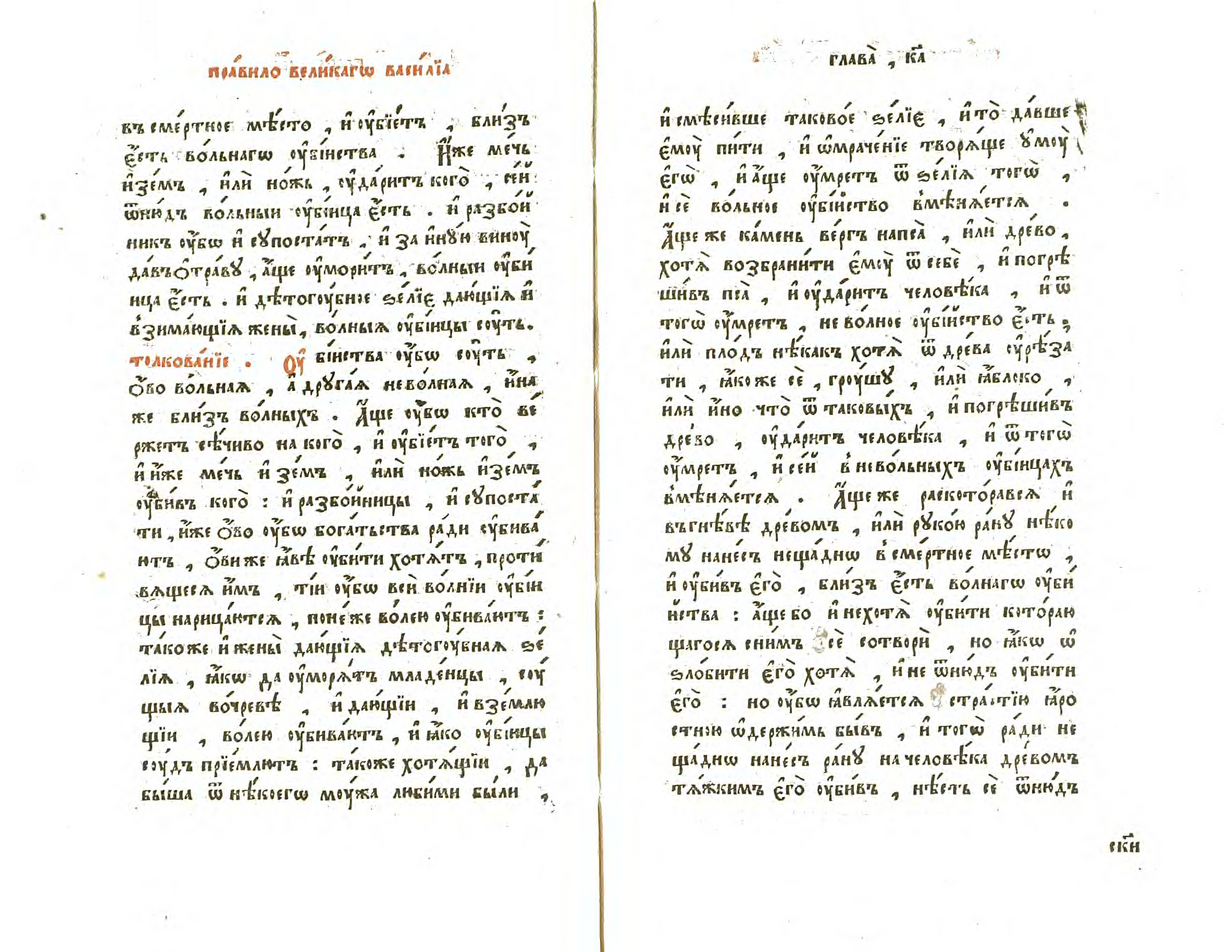 пра́вило вели́кагѡ васи́лїа
въ сме́ртное мѣ́сто , и҆ оу҆бїе́тъ , бли́зъ
є҆́сть во́льнагѡ оу҆бі́йства . И҆́же ме́чь
и҆зе́мъ , и҆лѝ но́жь , оу҆да́ритъ кого̀ , се́й
ѿню́дъ во́льныи оу҆бі́ица є҆́сть . и҆ разбо́й
никъ оу҆́бѡ и҆ сꙋпоста́тъ , и҆ за и҆нꙋ́ю винꙋ̀
да́въ ѻ҆тра́вꙋ , а҆́ще оу҆мори́тъ , во́лныи оу҆би́
ица є҆́сть . и҆ дѣтогꙋ́бное ѕе́лїє даю́щїѧ и҆
взима́ющїѧ жены̀ , во́лныѧ оу҆бі́ицы сꙋ́ть .
толкова́нїе . Оу҆ бі́йства оу҆́бѡ сꙋ́ть ,
ѻ҆́во во́льнаѧ , а҆ дрꙋга́ѧ нево́лнаѧ , и҆́на
же бли́зъ во́лныхъ . А҆́ще оу҆́бѡ кто̀ ве́
ржетъ сѣ́чиво на кого̀ , и҆ оу҆бїе́тъ того̀ ,
и҆ и҆́же ме́чь и҆зе́мъ , и҆лѝ но́жь и҆зе́мъ
оу҆би́въ кого̀ : и҆ разбо́йницы , и҆ сꙋпоста́
ти , и҆́же ѻ҆́во оу҆́бѡ бога́тьства ра́ди оу҆бива́
ютъ , ѻ҆́ви же ꙗ҆́вѣ оу҆би́ти хотѧ́тъ , проти́
вѧщесѧ и҆̀мъ , ті́и оу҆́бѡ всѝ во́лнїи оу҆бі́й
цы нарица́ютсѧ , поне́же во́лею оу҆бива́ютъ :
та́коже и҆ жены̀ даю́щїѧ дѣтогꙋ́бнаѧ ѕе́
лїѧ , ꙗ҆́кѡ да оу҆морѧ́тъ младе́нцы , сꙋ́
щыѧ во́чревѣ , и҆ даю́щїи , и҆ взе́млю
щїи , во́лею оу҆бива́ютъ , и҆ ꙗ҆́ко оу҆бі́ицы
сꙋ́дъ прїе́млютъ : та́коже хотѧ́щїи , да
бы́ша ѿ нѣ́коегѡ мꙋ́жа люби́ми бы́ли ,
глава̀ , к҃а
и҆ смѣси́вше таково́е ѕе́лїє , и҆ то̀ да́вше
є҆мꙋ̀ пи́ти , и҆ ѡ҆мраче́нїе творѧ́ще ᲂумꙋ̀
є҆гѡ̀ , и҆ а҆́ще оу҆́мретъ ѿ ѕе́лїѧ тогѡ̀ ,
и҆ сѐ во́льное оу҆бі́йство вмѣнѧ́етсѧ .
А҆́ще же ка́мень ве́ргъ на пса̀ , и҆лѝ дре́во ,
хотѧ̀ возбрани́ти є҆мꙋ̀ ѿ себѐ , и҆ погрѣ
ши́въ пса̀ , и҆ оу҆да́ритъ человѣ́ка , и҆ ѿ
тогѡ̀ оу҆́мретъ , нево́лное оу҆бі́йство є҆́сть ,
и҆лѝ пло́дъ нѣ́какъ хотѧ̀ ѿ дре́ва оу҆рѣ́за
ти , ꙗ҆́коже сѐ , грꙋ́шꙋ , и҆лѝ ꙗ҆́блоко ,
и҆лѝ и҆́но что̀ ѿ таковы́хъ , и҆ погрѣши́въ
дре́во , оу҆да́ритъ человѣ́ка , и҆ ѿ тогѡ̀
оу҆́мретъ , и҆ се́й в нево́льныхъ оу҆бі́ицахъ
вмѣнѧ́етсѧ . А҆́ще же раскотора́всѧ и҆
въ гнѣ́вѣ дре́вомъ , и҆лѝ рꙋко́ю ра́нꙋ нѣ́ко
мꙋ нане́съ неща́днѡ в сме́ртное мѣ́стѡ ,
и҆ оу҆би́въ є҆го̀ , бли́зъ є҆́сть во́лнагѡ оу҆би́
йства : а҆́ще бо и҆ нехотѧ̀ оу҆би́ти котораю
щагосѧ сни́мъ сѐ сотворѝ , но ꙗ҆́кѡ ѡ҆
ѕло́бити є҆го̀ хотѧ̀ , и҆ не ѿню́дъ оу҆би́ти
є҆го̀ : но оу҆́бѡ ꙗ҆влѧ́етсѧ стра́стїю ꙗ҆́ро
стною ѡ҆держи́мь бы́въ , и҆ тогѡ̀ ра́ди не
ща́днѡ нане́съ ра́нꙋ на человѣ́ка дре́вомъ
тѧ́жкимъ є҆го̀ оу҆би́въ , нѣ́сть сѐ ѿню́дъ
ск҃и